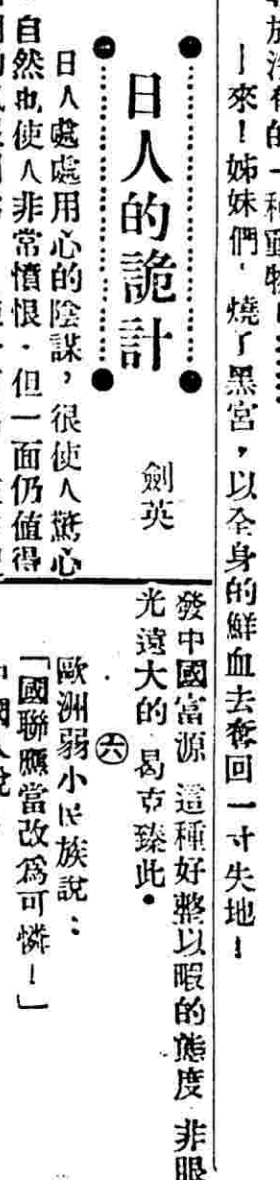 ─來！姊妹們，燒了黑宮，以全身的鮮血去奪回一寸失地！
日人的詭計
劍英
日人處處用心的陰謀，很使人驚心
自然也使人非常憤恨．但一面仍值得
發中國富源 這種好整以暇的態度 非眼
光遠大的 曷克臻此．
㊅
歐洲弱小民族說：
「國聯應當改爲可憐！」